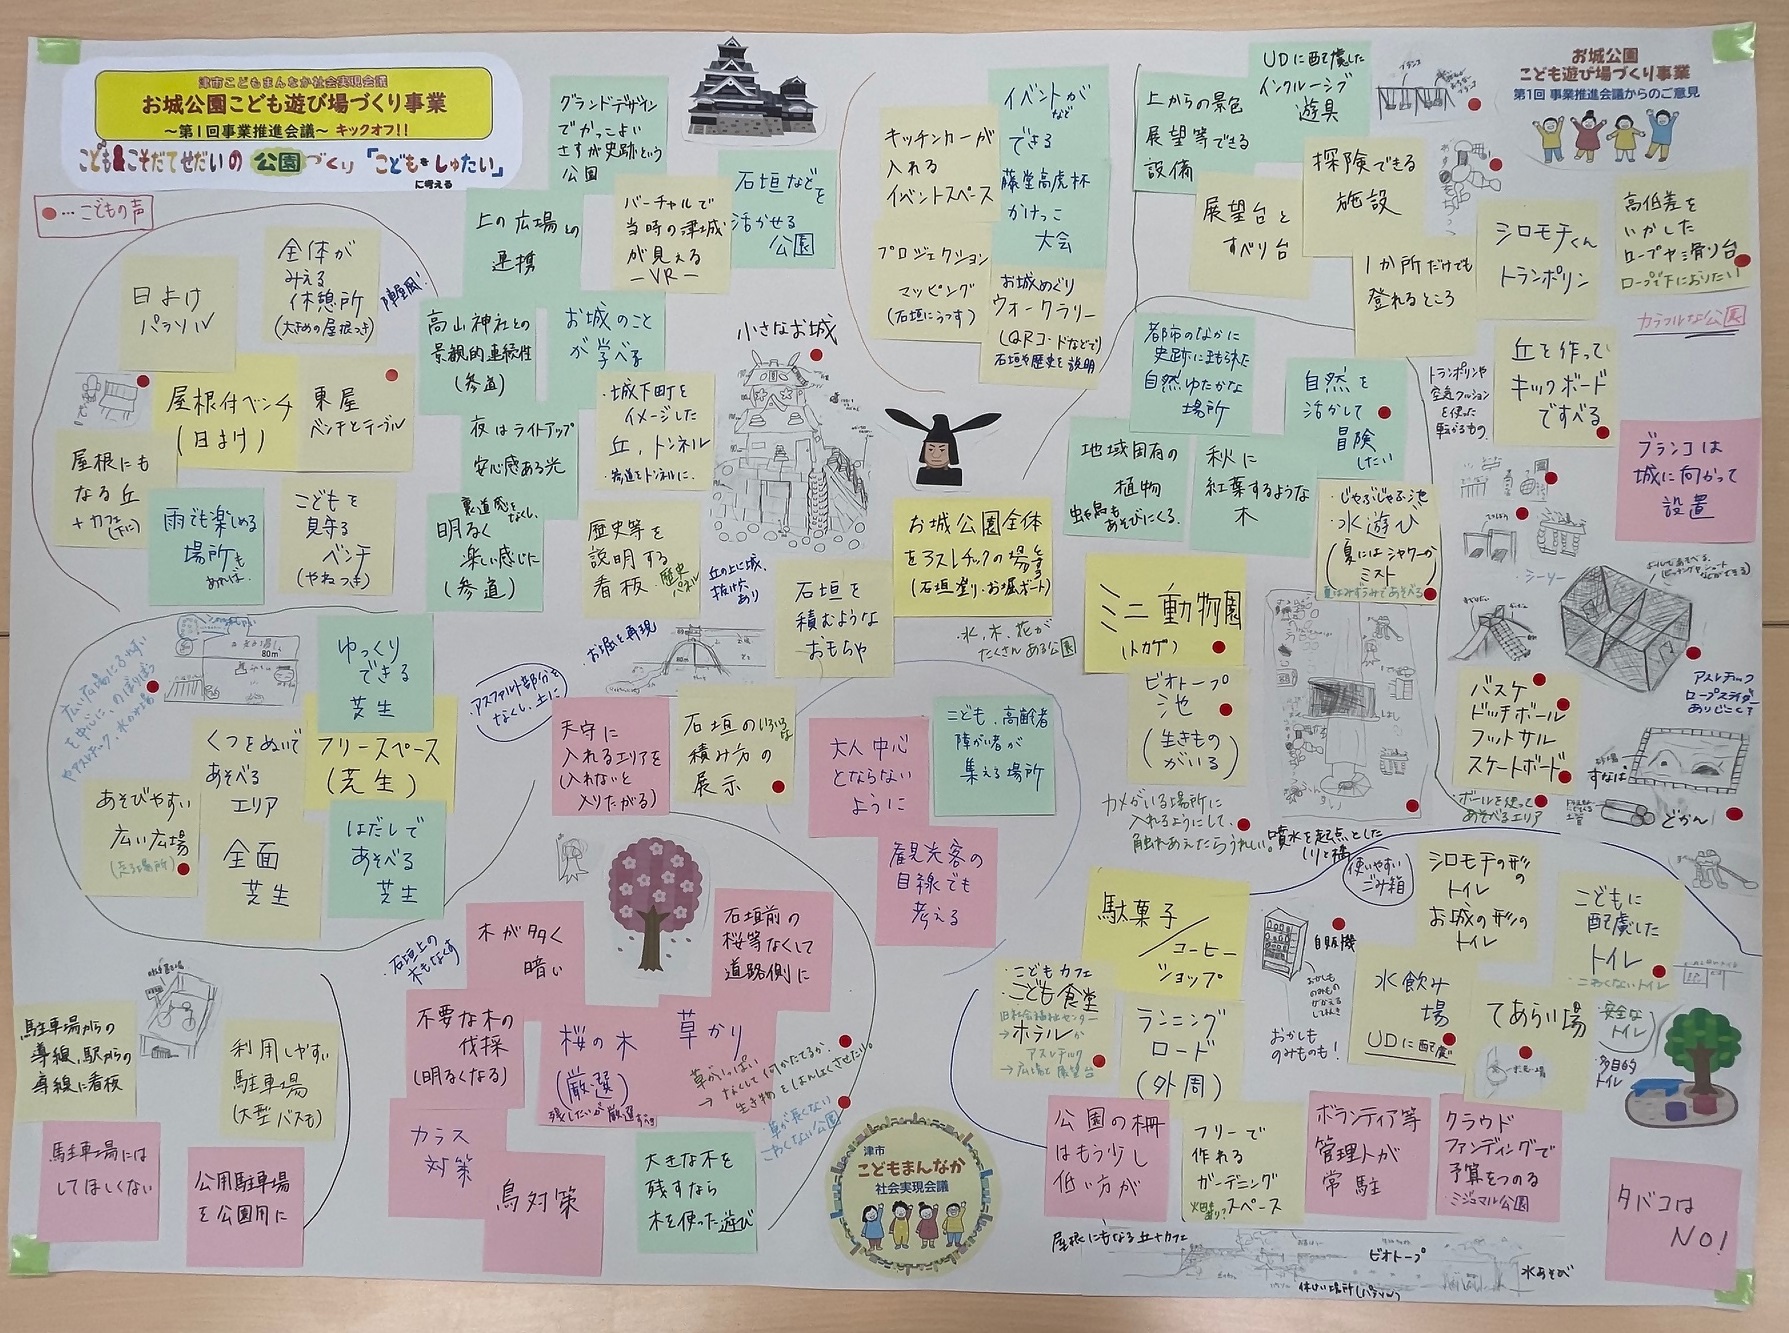 津市こどもまんなか社会実現会議
お城公園こども遊び場づくり事業
～第1回事業推進会議～ キックオフ!!
こども&こそだてせだいの公園づくり「こどもをしゅたい」
に考える
●…こどもの声
お城公園
こども遊び場づくり事業
第1回 事業推進会議からのご意見
グランドデザイン
でかっこよい
さすが史跡という
公園
上の広場との
連携
バーチャルで
当時の津城
が見える
－VR－
石垣などを
活かせる
公園
高山神社との
景観的連続性
(参道)
お城のこと
が学べる
夜はライトアップ
安心感ある光
城下町を
イメージした
丘、トンネル
・参道をトンネルに.
裏道感をなくし、
明るく
楽しい感じた
(参道)
歴史等を
説明する
看板
歴史パネル
小さなお城
丘の上に城、
抜け穴
あり
お堀を再現
80m
石垣を
積むような
おもちゃ
日よけ
パラソル
全体が
みえる
休憩所
(大きめの屋根つき)
陣屋風!
屋根付ベンチ
(日よけ)
東屋
ベンチとテーブル
屋根にも
なる丘
+カフェ
(下に)
雨でも楽しめる
場所も
あれば.
こどもを
見守る
ベンチ
(やねつき)
ゆっくり
できる
芝生
くつをぬいで
あそべる
エリア
フリースペース
(芝生)
あそびやすい
広い広場
(走る場所)
全面
芝生
はだしで
あそべる
芝生
80m
アスファルト部分を
なくし、土に
天守に
入れるエリアを
(入れないと
入りたがる)
石垣のいろいろな
積み方の
展示
大人中心
とならない
ように
こども、高齢者
障がい者が
集える場所
観光客の
目線でも
考える
キッチンカーが
入れる
イベントスペース
イベントなどが
できる
藤堂高虎杯
かけっこ
大会
プロジェクション
マッピング
(石垣にうつす)
お城めぐり
ウォークラリー
(QRコードなどで)
石垣や歴史を説明
お城公園全体
をアスレチックの場とする
(石垣登り・お堀ボート)
水、木、花が
たくさんある公園
上からの景色
展望等できる
設備
UDに配慮した
インクルーシブ
遊具
ブランコ
展望台と
すべり台
探険できる
施設
1か所だけでも
登れるところ
シロモチくん
トランポリン
高低差を
いかした
ロープや滑り台
ロープで下におりたい
カラフルな公園
丘を作って
キックボード
ですべる
トランポリンや
空気クッション
を使った
転がるもの.
ブランコは
城に向かって
設置
都市のなかに
史跡にまもられた
自然ゆたかな
場所
自然を
活かして
冒険
したい
地域固有の
植物
虫や鳥も
あそびにくる.
秋に
紅葉するような
木
・じゃぶじゃぶ池
水遊び
(夏にはシャワーか
ミスト)
夏はみずうみであそべる
ミニ動物園
(トカゲ)
ビオトープ
池
(生きもの
がいる)
カメがいる場所に
入れるようにして、
触れあえたらうれしい。
噴水を起点とした
バスケ
ドッチボール
フットサル
スケートボード
・ボールを使って
あそべるエリア
シーソー
アスレチック
ロープスライダー
ありじごく
すなば
どかん
駄菓子
／コーヒー
ショップ
・こどもカフェ
・こども食堂
旧社会福祉センター
→ホテルか
アスレチック
→広場と展望台
ランニング
ロード
(外周)
使いやすい
ごみ箱
自販機
おかしも
のみものも!
シロモチの形の
トイレ
お城の形の
トイレ
こどもに
配慮した
トイレ
・こわくないトイレ
水飲み
場
UDに配慮
てあらい場
・安全な
トイレ
多目的
トイレ
公園の柵
はもう少し
低い方が
フリーで
作れる
ガーデニング
スペース
ボランティア等
管理人が
常駐
クラウド
ファンディングで
予算をつのる
タバコは
NO!
屋根にもなる丘+カフェ
ビオトープ
水あそび
木が多く
暗い
石垣前の
桜等なくして
道路側に
・石垣上の
木もなくす
不要な木の
伐採
(明るくなる)
桜の木
(厳選)
残したいが厳選する
草かり
草がいっぱい
カラス
対策
鳥対策
大きな木を
残すなら
木を使った遊び
・草が長くない
こわくない公園
駐車場からの
導線、駅からの
導線に看板
利用しやすい
駐車場
(大型バスも)
駐車場には
してほしくない
公用駐車場
を公園用に
津市
こどもまんなか
社会実現会議